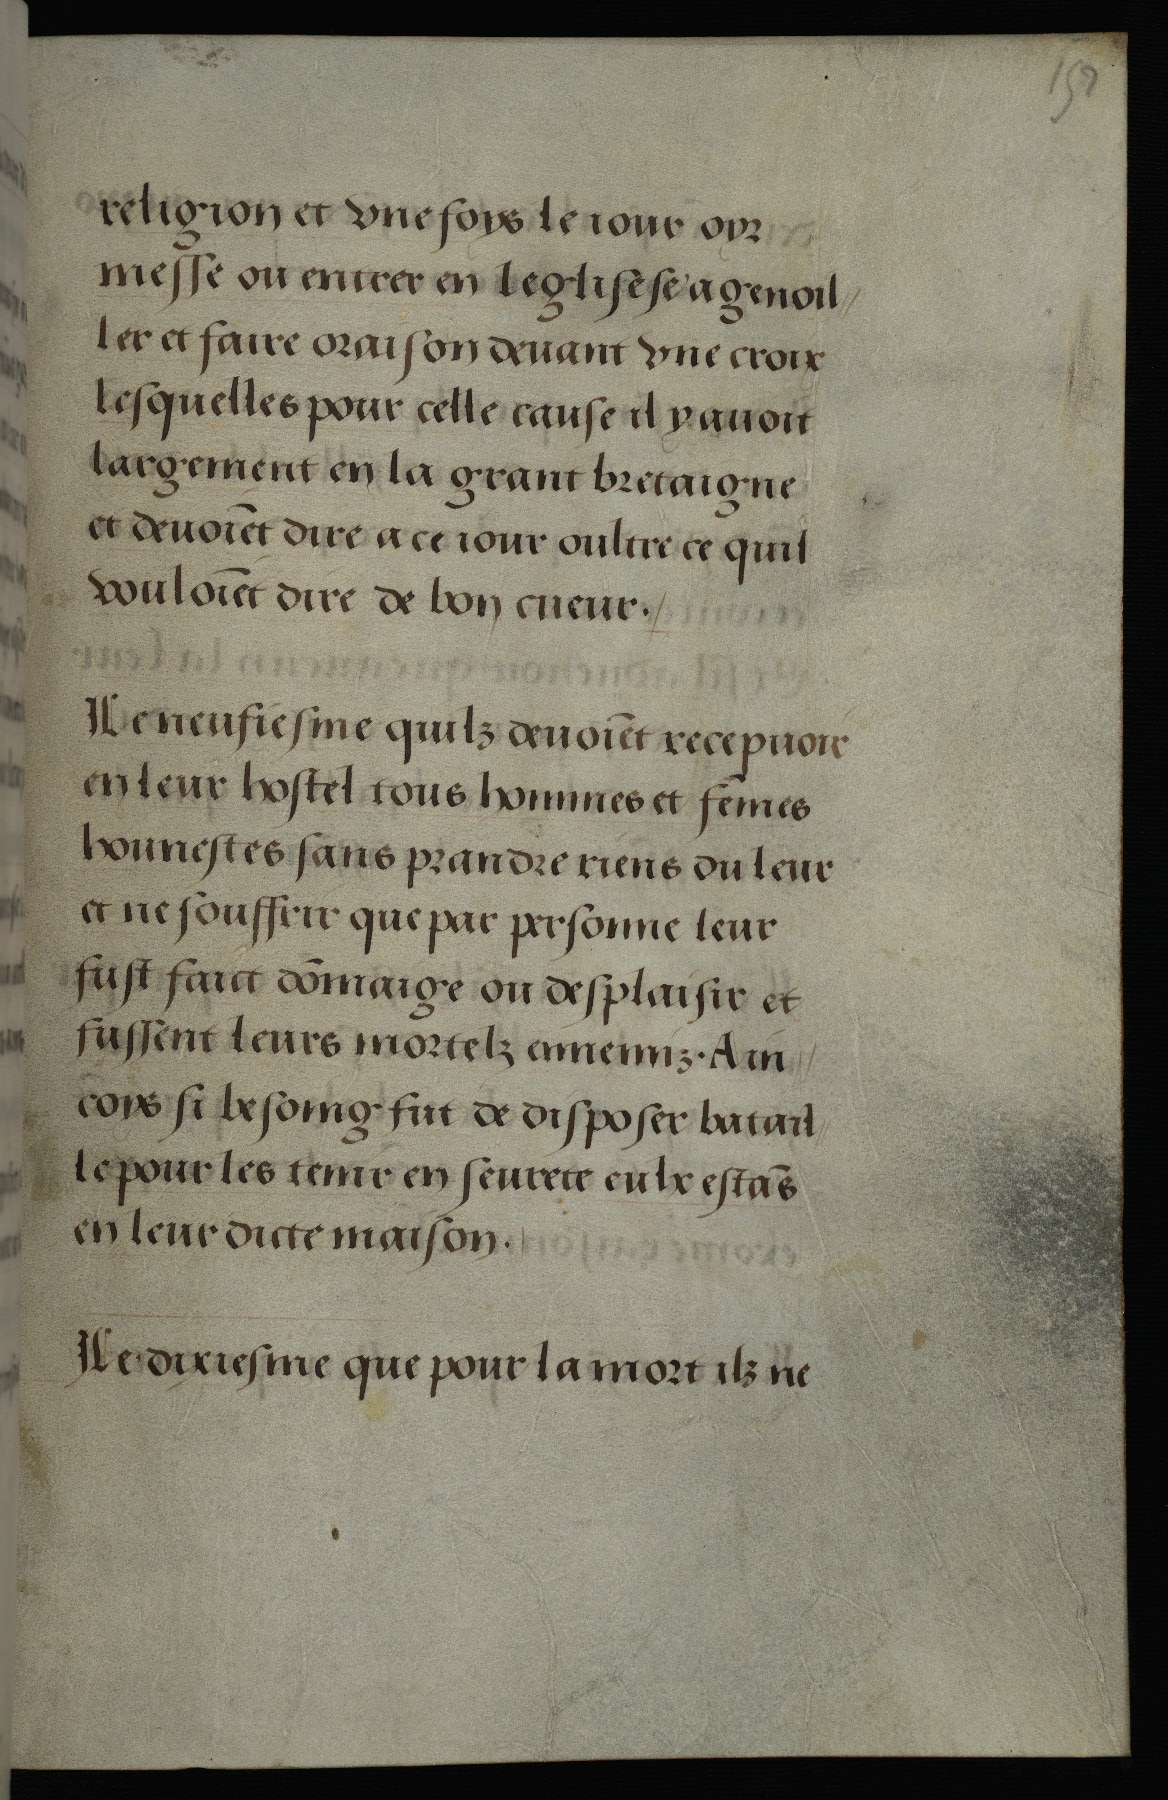 religion et vne foys le iour oyr
messe ou entrer en leglise se agenoil//
ler et faire oraison deuant vne croix
lesquelles pour celle cause il y auoit
largement en la grant bretaigne
et deuoiēt dire a ce iour oultre ce quil
vouloiēt dire de bon cueur./
Le neufiesme quilz deuoiēt recepuoir
en leur hostel tous hommes et fēmes
hounestes sans prandre riens du leur
et ne souffrir que par personne leur
fust faict dōmaige ou desplaisir et
fussent leurs mortelz ennemiz. Ain//
coys si besoing fut de disposer batail//
le pour les tenir en seurete eulx estās
en leur dicte maison.
Le dixiesme que pour la mort ilz ne